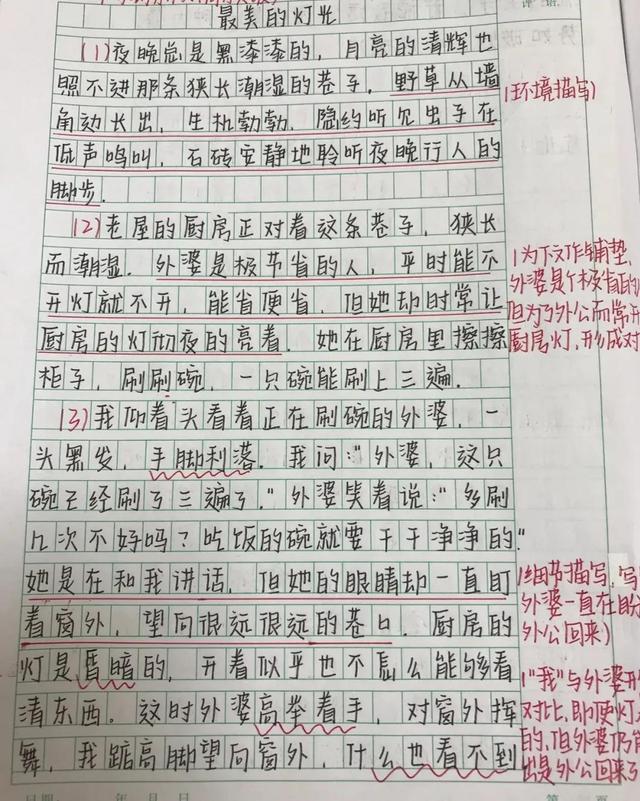 最美的灯光
评语
(1)夜晚总是黑漆漆的，月亮的清辉也
照不进那条狭长潮湿的巷子，野草从墙
角边长出，生机勃勃．隐约听见虫子在
低声鸣叫，石砖安静地聆听夜晚行人的
脚步．
(环境描写)
(2)老屋的厨房正对着这条巷子，狭长
而潮湿．外婆是极节省的人，平时能不
开灯就不开，能省便省，但她却时常让
厨房的灯彻夜的亮着．她在厨房里擦擦
柜子，刷刷碗，一只碗能刷上三遍．
(为下文作铺垫，
外婆是个极省的
但为了外公而常开
厨房灯，形成对
(3)我仰着头看着正在刷碗的外婆，一
头黑发，手脚利落．我问："外婆，这只
碗已经刷了三遍了．"外婆笑着说："多刷
几次不好吗？吃饭的碗就要干干净净的"
她是在和我讲话，但她的眼睛却一直盯
着窗外，望向很远很远的巷口．厨房的
灯是昏暗的，开着似乎也不怎么能够看
清东西．这时外婆高举着手，对窗外挥
舞，我踮高脚望向窗外，什么也看不到
(细节描写，写
外婆一直在盼
外公回来)
("我"与外婆形
对比，即便灯
的，但外婆仍能
出是外公回来了
日期： 年 月 日
第 页